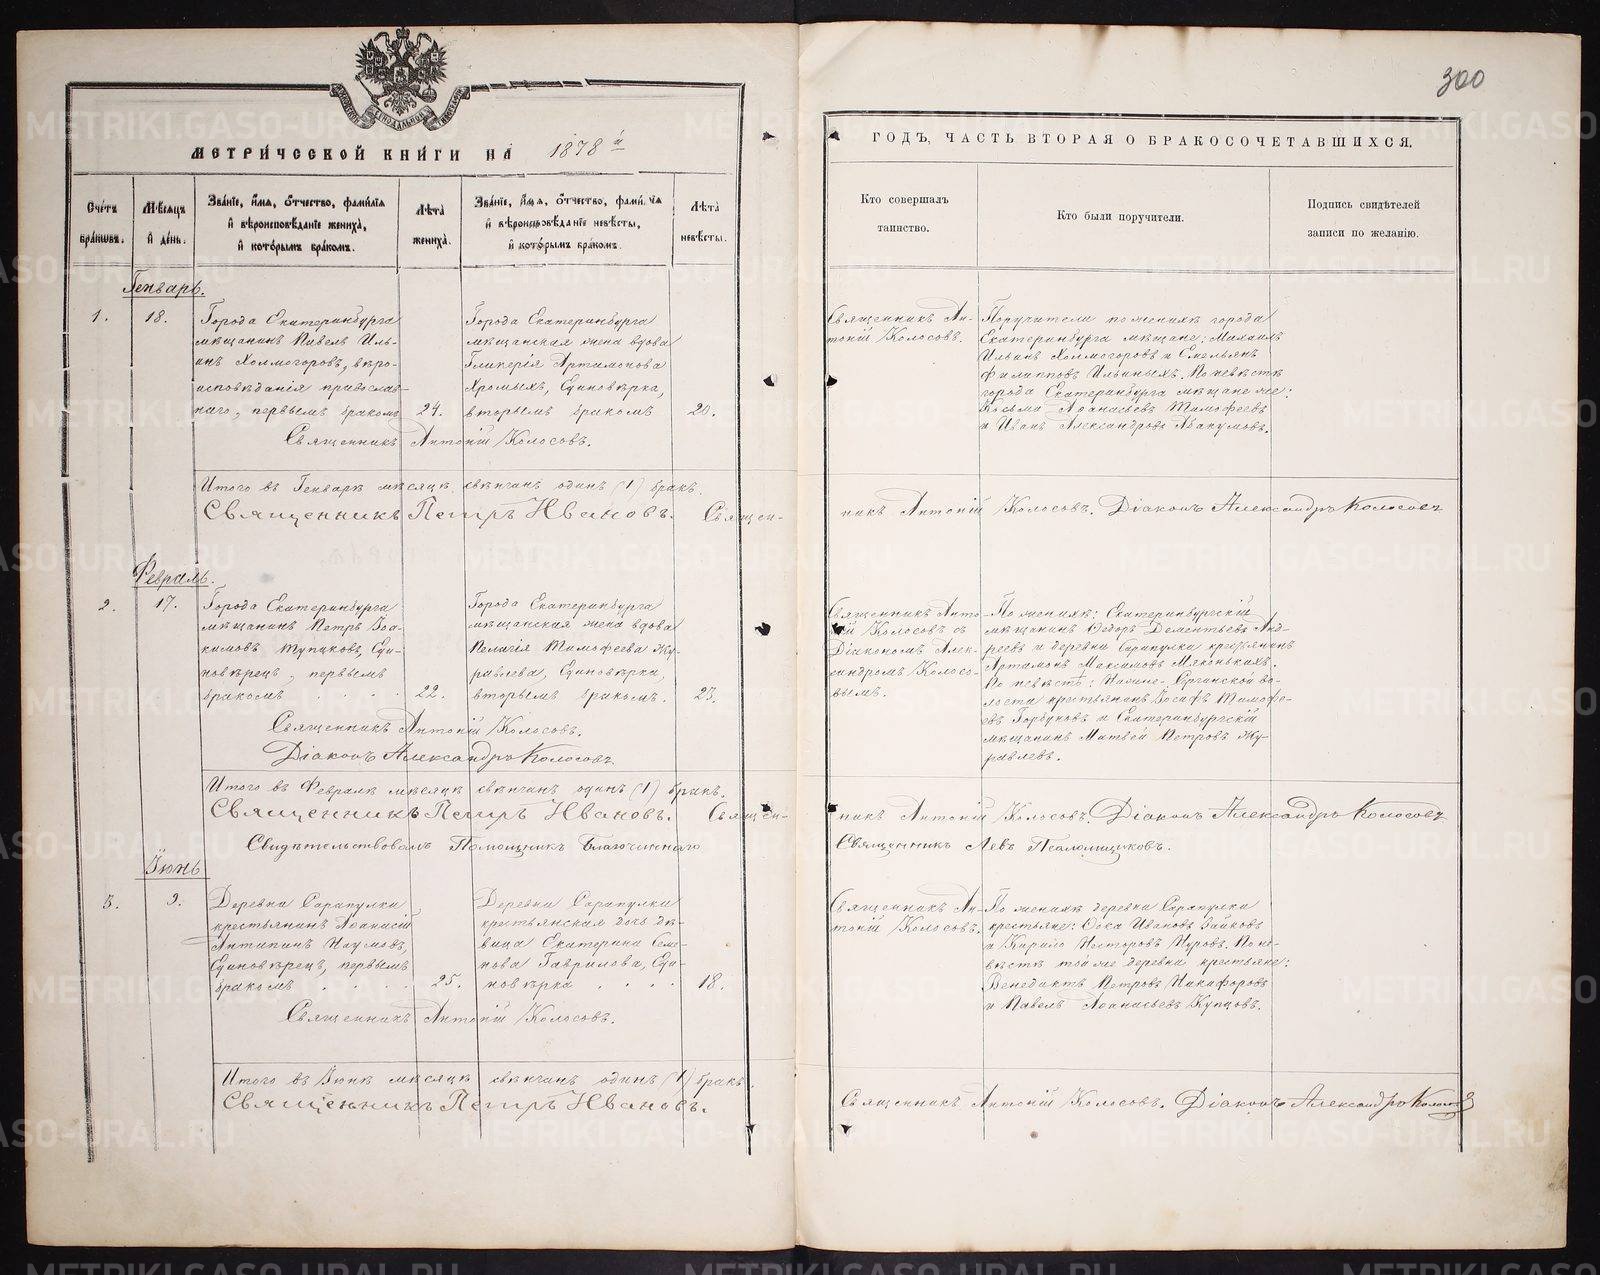 300
МЕТРИЧЕСКОЙ КНИГИ НА 1878й
ГОДЪ, ЧАСТЬ ВТОРАЯ О БРАКОСОЧЕТАВШИХСЯ.
Счетъ браковъ.
Мѣсяцъ и день.
Званіе, имя, отчество, фамилія
и вѣроисповѣданіе жениха,
и которымъ бракомъ.
Лѣта
жениха.
Званіе, имя, отчество, фамилія
и вѣроисповѣданіе невѣсты,
и которымъ бракомъ.
Лѣта
невѣсты.
Кто совершалъ
таинство.
Кто были поручители.
Подпись свидѣтелей
записи по желанію.
Генварь.
1.
18.
Города Екатеринбурга
мѣщанинъ Павелъ Иль-
инъ Холмогоровъ, вѣро-
исповѣданія православ-
наго, первымъ бракомъ
24.
Города Екатеринбурга
мѣщанская жена вдова
Гликерія Артамонова
Хромыхъ, Единовѣрка,
вторымъ бракомъ
20.
Священникъ Ан-
тоній Колосовъ.
Поручители по женихѣ города
Екатеринбурга мѣщане: Михаилъ
Ильинъ Холмогоровъ и Емельянъ
Филипповъ Ильиныхъ. По невѣстѣ
города Екатеринбурга мѣщане же:
Косьма Аѳанасьевъ Тимофеевъ
и Иванъ Александровъ Абакумовъ.
Священникъ Антоній Колосовъ.
Итого въ Генварѣ мѣсяцѣ свѣнчанъ одинъ (1) бракъ.
Священникъ Петръ Ивановъ. Священ-
никъ Антоній Колосовъ. Діаконъ Александръ Колосовъ
Февраль.
2.
17.
Города Екатеринбурга
мѣщанинъ Петръ Іоа-
кимовъ Тупиковъ, Еди-
новѣрецъ, первымъ
бракомъ . . . .
22.
Города Екатеринбурга
мѣщанская жена вдова
Пелагія Тимофеева Жу-
равлева, Единовѣрка,
вторымъ бракомъ.
23.
Священникъ Анто-
ній Колосовъ съ
Діакономъ Алек-
сандромъ Колосо-
вымъ.
По женихѣ: Екатеринбургскій
мѣщанинъ Ѳедоръ Дементьевъ Анд-
реевъ и деревни Сарапулка крестьянинъ
Артамонъ Максимовъ Мяконькихъ.
По невѣстѣ: Нижне-Сергинской во-
лости крестьянинъ Іосафъ Тимофе-
евъ Горбуновъ и Екатеринбургскій
мѣщанинъ Матвей Петровъ Жу-
равлевъ.
Священникъ Антоній Колосовъ.
Діаконъ Александръ Колосовъ.
Итого въ Февралѣ мѣсяцѣ свѣнчанъ одинъ (1) бракъ.
Священникъ Петръ Ивановъ. Священ-
никъ Антоній Колосовъ. Діаконъ Александръ Колосовъ
Свидѣтельствовалъ Помощникъ Благочиннаго
Священникъ Левъ Псаломщиковъ.
Іюнь
3.
9.
Деревни Сарапулки
крестьянинъ Аѳанасій
Антипинъ Наумовъ,
Единовѣрецъ, первымъ
бракомъ . . . .
25.
Деревни Сарапулки
крестьянская дочь дѣ-
вица Екатерина Семе-
нова Гаврилова, Еди-
новѣрка . . . .
18.
Священникъ Ан-
тоній Колосовъ.
По женихѣ деревни Сарапулки
крестьяне: Ѳока Ивановъ Зайковъ
и Кирило Несторовъ Нуровъ. По не-
вѣстѣ той же деревни крестьяне:
Венедиктъ Петровъ Никифоровъ
и Павелъ Аѳанасьевъ Купцовъ.
Священникъ Антоній Колосовъ.
Итого въ Іюнѣ мѣсяцѣ свѣнчанъ одинъ (1) бракъ.
Священникъ Петръ Ивановъ.
Священникъ Антоній Колосовъ. Діаконъ Александръ Колосовъ
METRIKI.GASO-URAL.RU